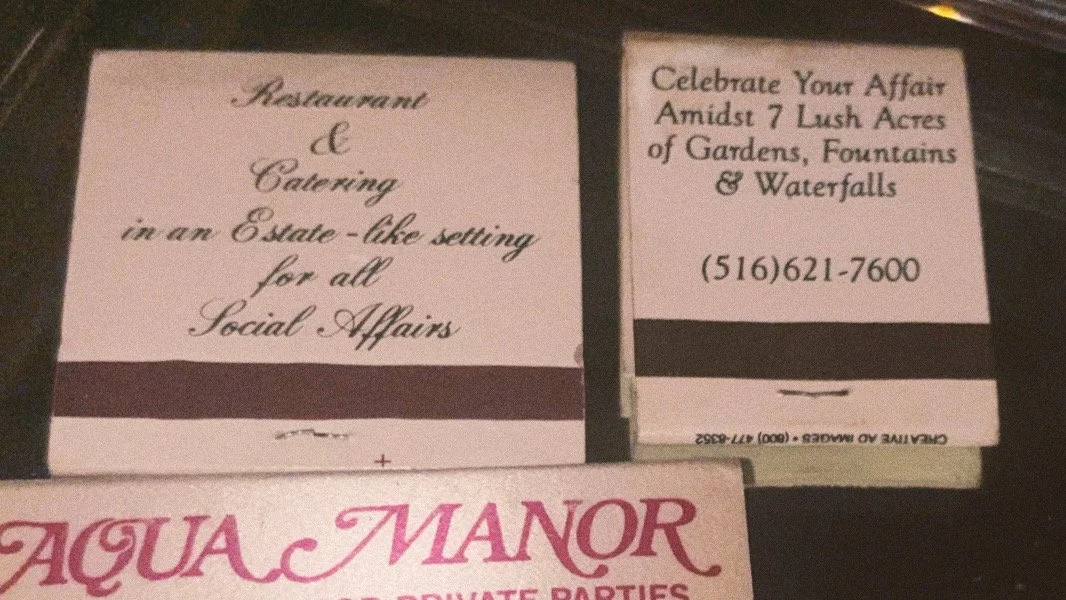 Restaurant
&
Catering
in an Estate-like setting
for all
Social Affairs
Celebrate Your Affair
Amidst 7 Lush Acres
of Gardens, Fountains
& Waterfalls
(516)621-7600
CREATIVE AD IMAGES • (800) 477-8352
AQUA MANOR
PRIVATE PARTIES